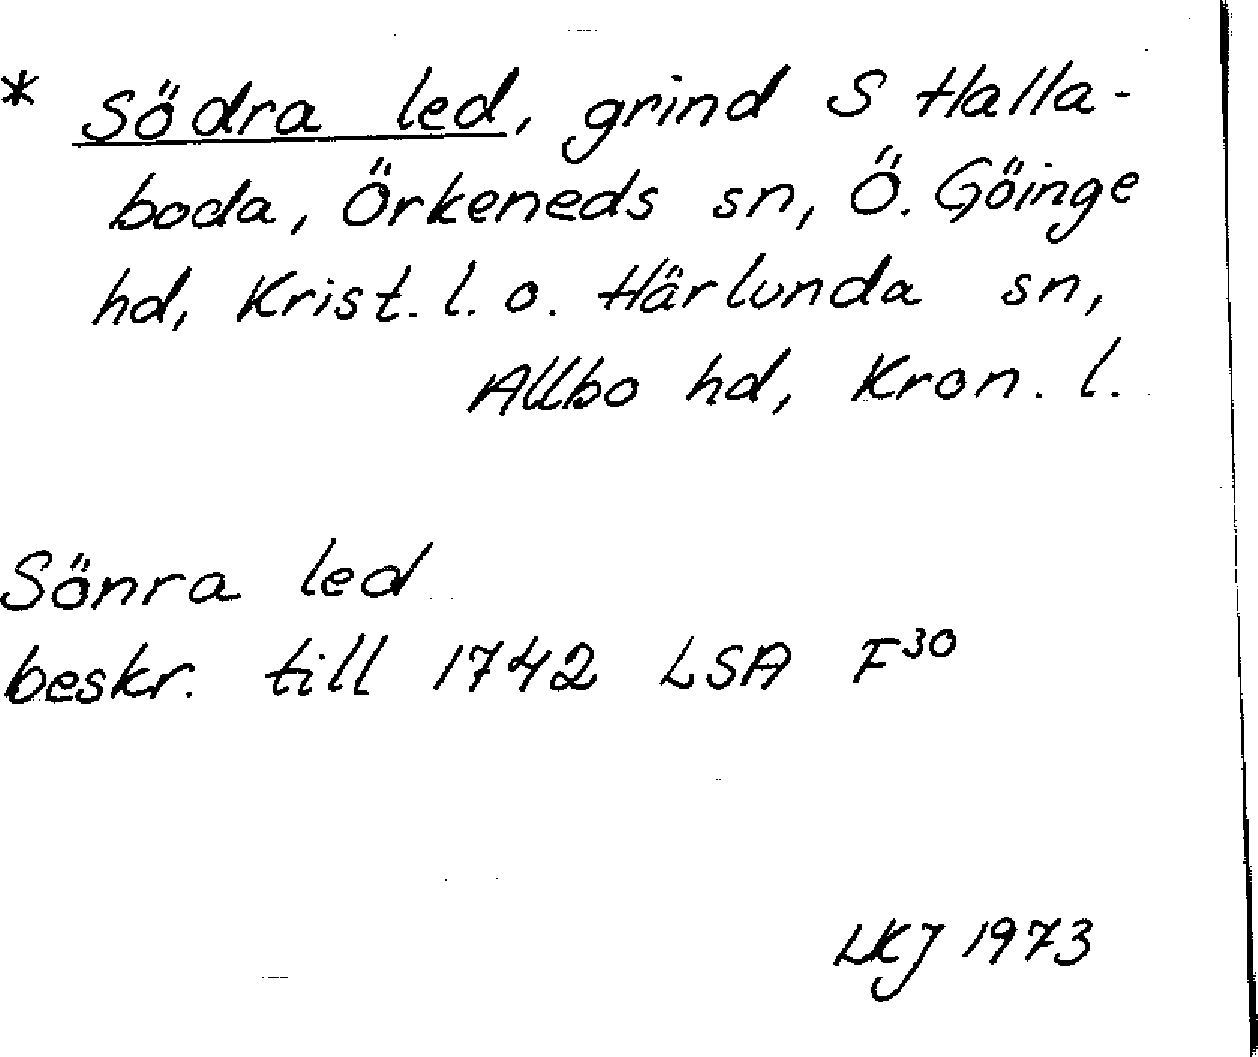 * Södra led, grind S Halla-
boda, Örkeneds sn, Ö. Göinge
hd, Krist. l. o. Härlunda sn,
Allbo hd, Kron. l.
Sönra led
beskr. till 1742 LSA F30
LKJ 1973